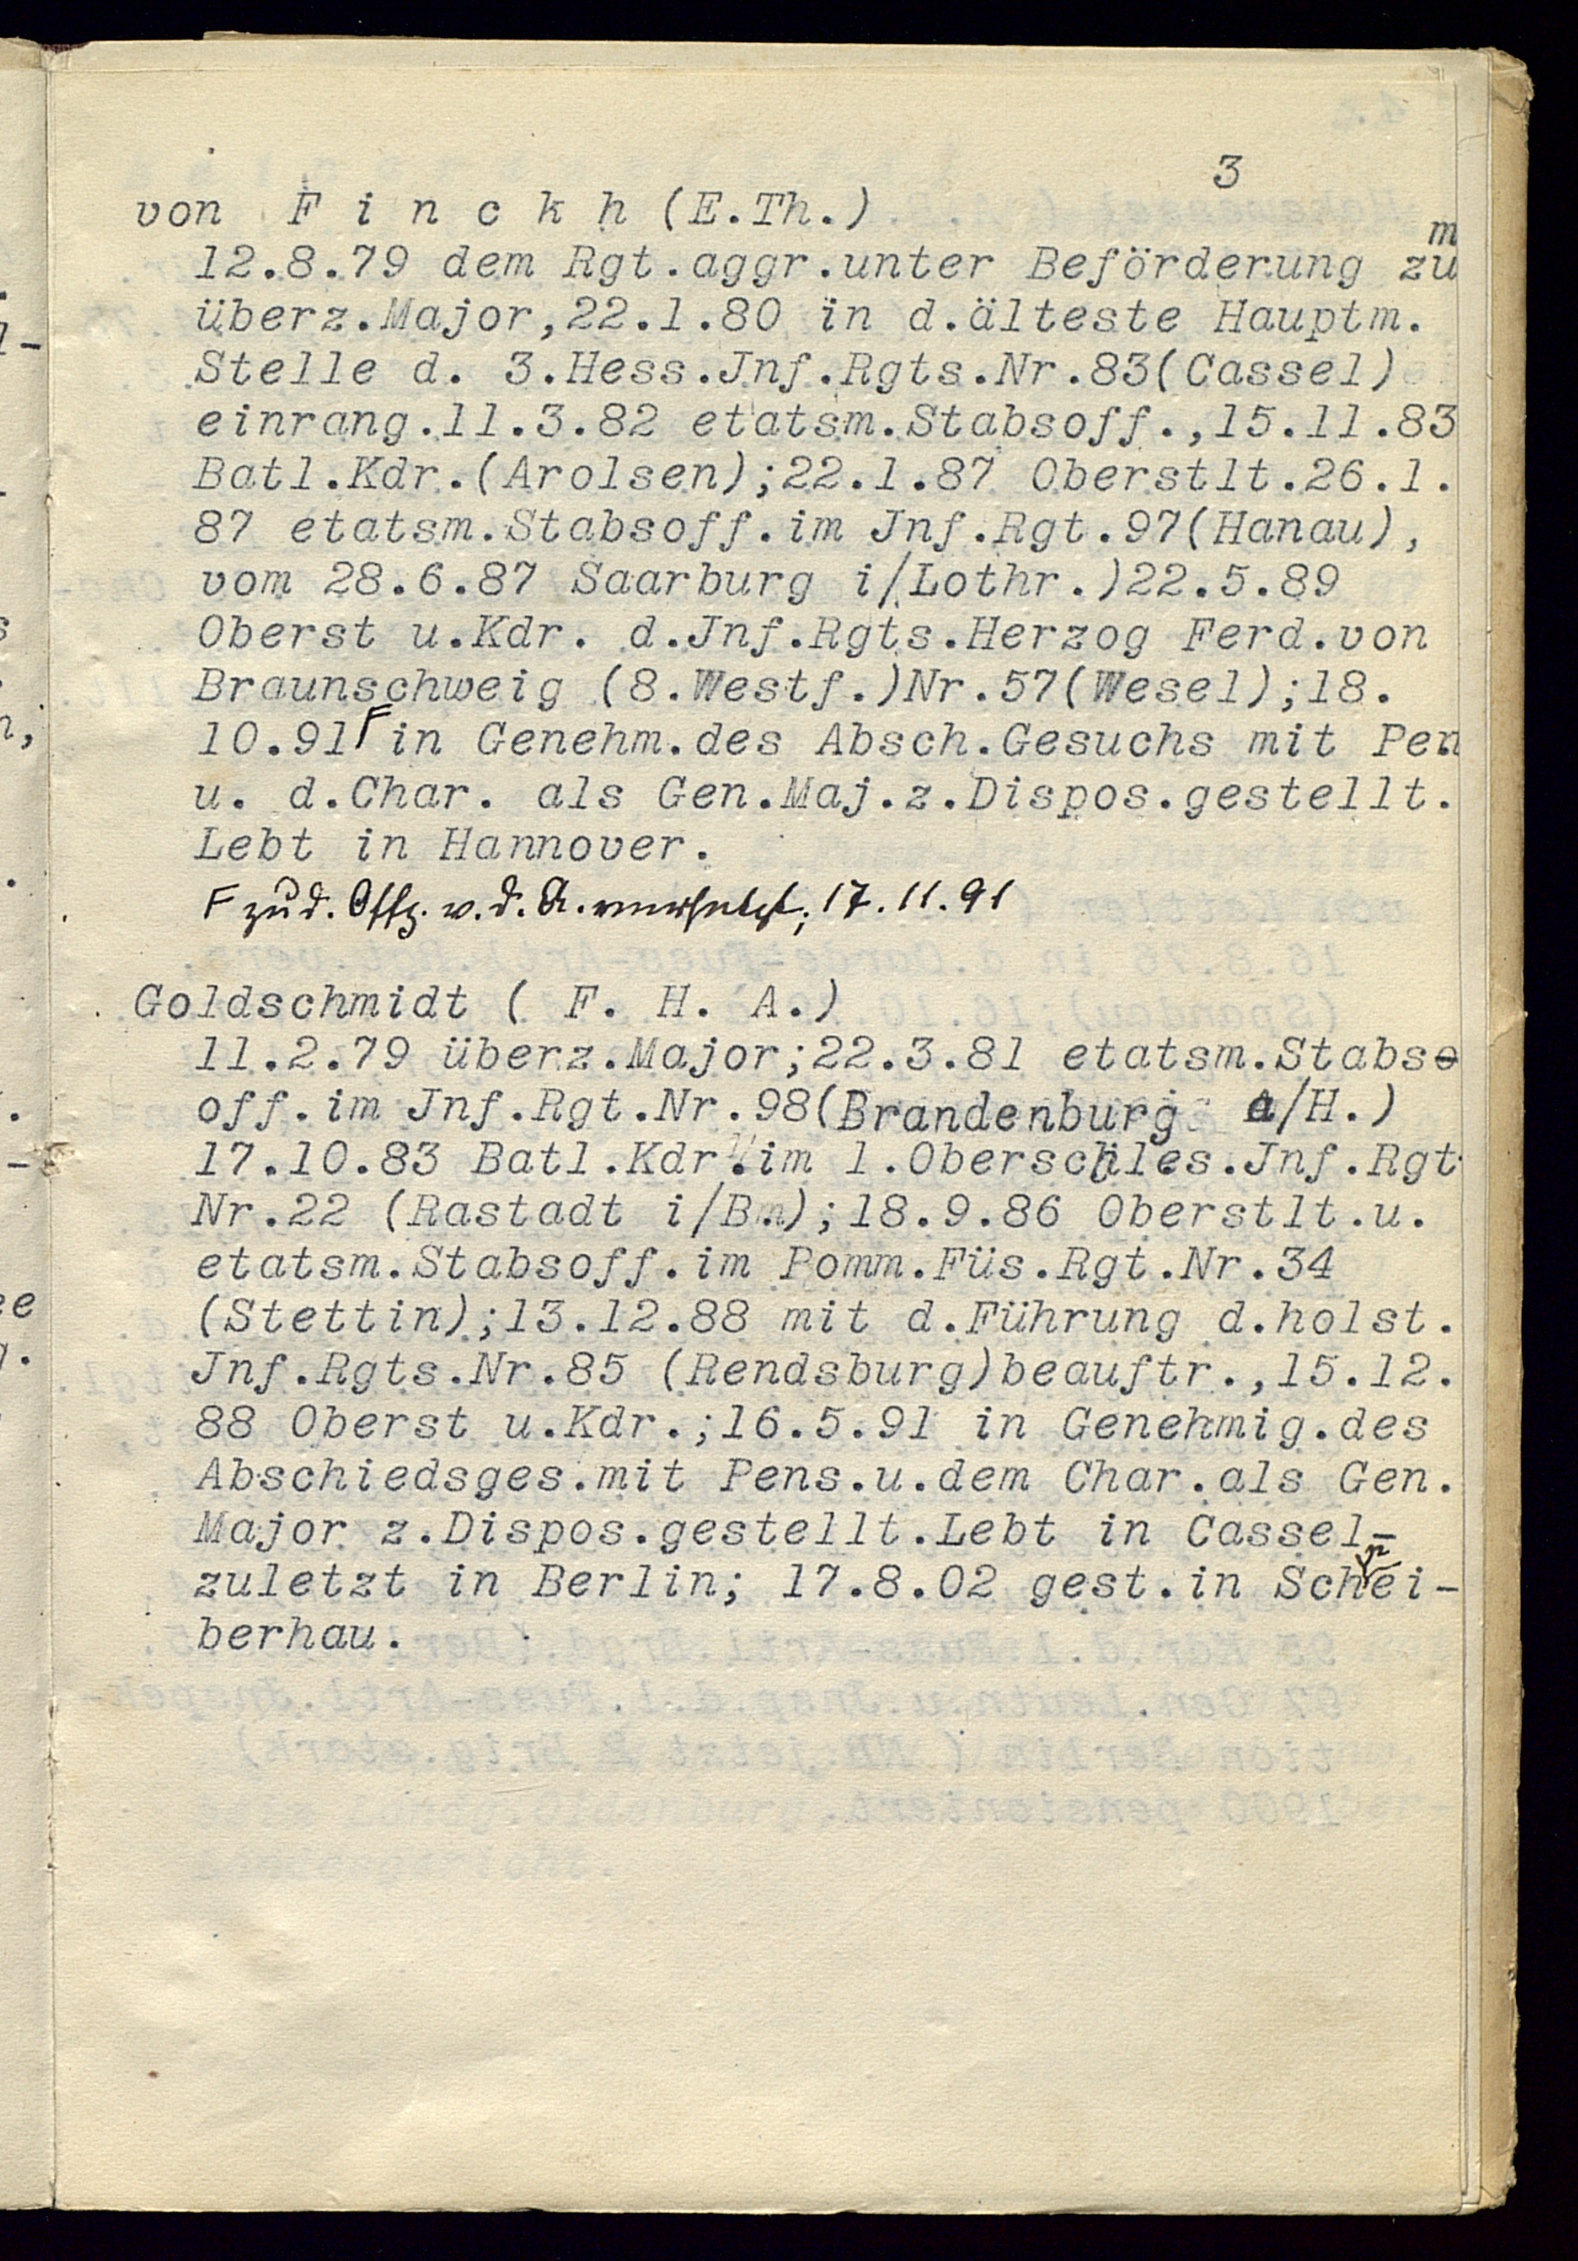 3
von F i n c k h (E.Th.)
12.8.79 dem Rgt.aggr.unter Beförderung zum
überz.Major,22.1.80 in d.älteste Hauptm.
Stelle d. 3.Hess.Jnf.Rgts.Nr.83(Cassel)
einrang.11.3.82 etatsm.Stabsoff.,15.11.83
Batl.Kdr.(Arolsen);22.1.87 Oberstlt.26.1.
87 etatsm.Stabsoff.im Jnf.Rgt.97(Hanau),
vom 28.6.87 Saarburg i/Lothr.)22.5.89
Oberst u.Kdr. d.Jnf.Rgts.Herzog Ferd.von
Braunschweig (8.Westf.)Nr.57(Wesel);18.
10.91 F in Genehm.des Absch.Gesuchs mit Pen
u. d.Char. als Gen.Maj.z.Dispos.gestellt.
Lebt in Hannover.
F zu d. Offz. v. d. A. versetzt; 17.11.91
Goldschmidt ( F. H. A.)
11.2.79 überz.Major;22.3.81 etatsm.Stabs
off.im Jnf.Rgt.Nr.98(Brandenburg a/H.)
17.10.83 Batl.Kdr.im 1.Oberschles.Jnf.Rgt.
Nr.22 (Rastadt i/B.);18.9.86 Oberstlt.u.
etatsm.Stabsoff.im Pomm.Füs.Rgt.Nr.34
(Stettin);13.12.88 mit d.Führung d.holst.
Jnf.Rgts.Nr.85 (Rendsburg)beauftr.,15.12.
88 Oberst u.Kdr.;16.5.91 in Genehmig.des
Abschiedsges.mit Pens.u.dem Char.als Gen.
Major z.Dispos.gestellt.Lebt in Cassel-
zuletzt in Berlin; 17.8.02 gest.in Schrei-
berhau.